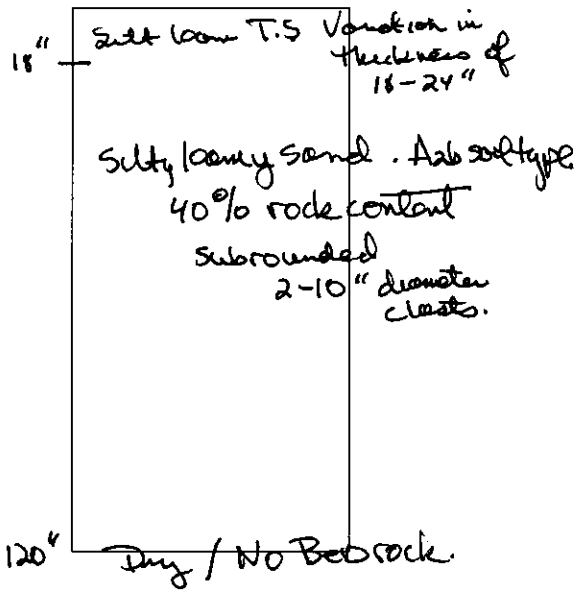 Silt loam T.S Variation in
thickness of
18-24"
18"
Silty loamy sand. A2b soil type
40% rock content
subrounded
2-10" diameter
clasts.
120"
Dry / No Bedrock.